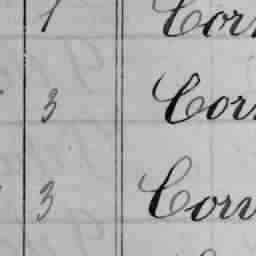 1 Cor
3 Cor
3 Corv